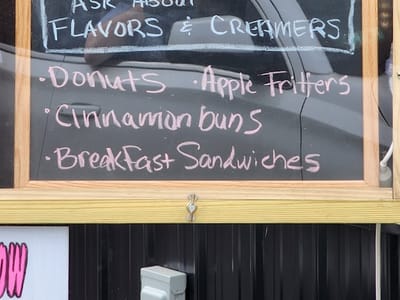 ASK ABOUT
FLAVORS & CREAMERS
·Donuts ·Apple Fritters
·Cinnamon buns
·Breakfast Sandwiches
OW